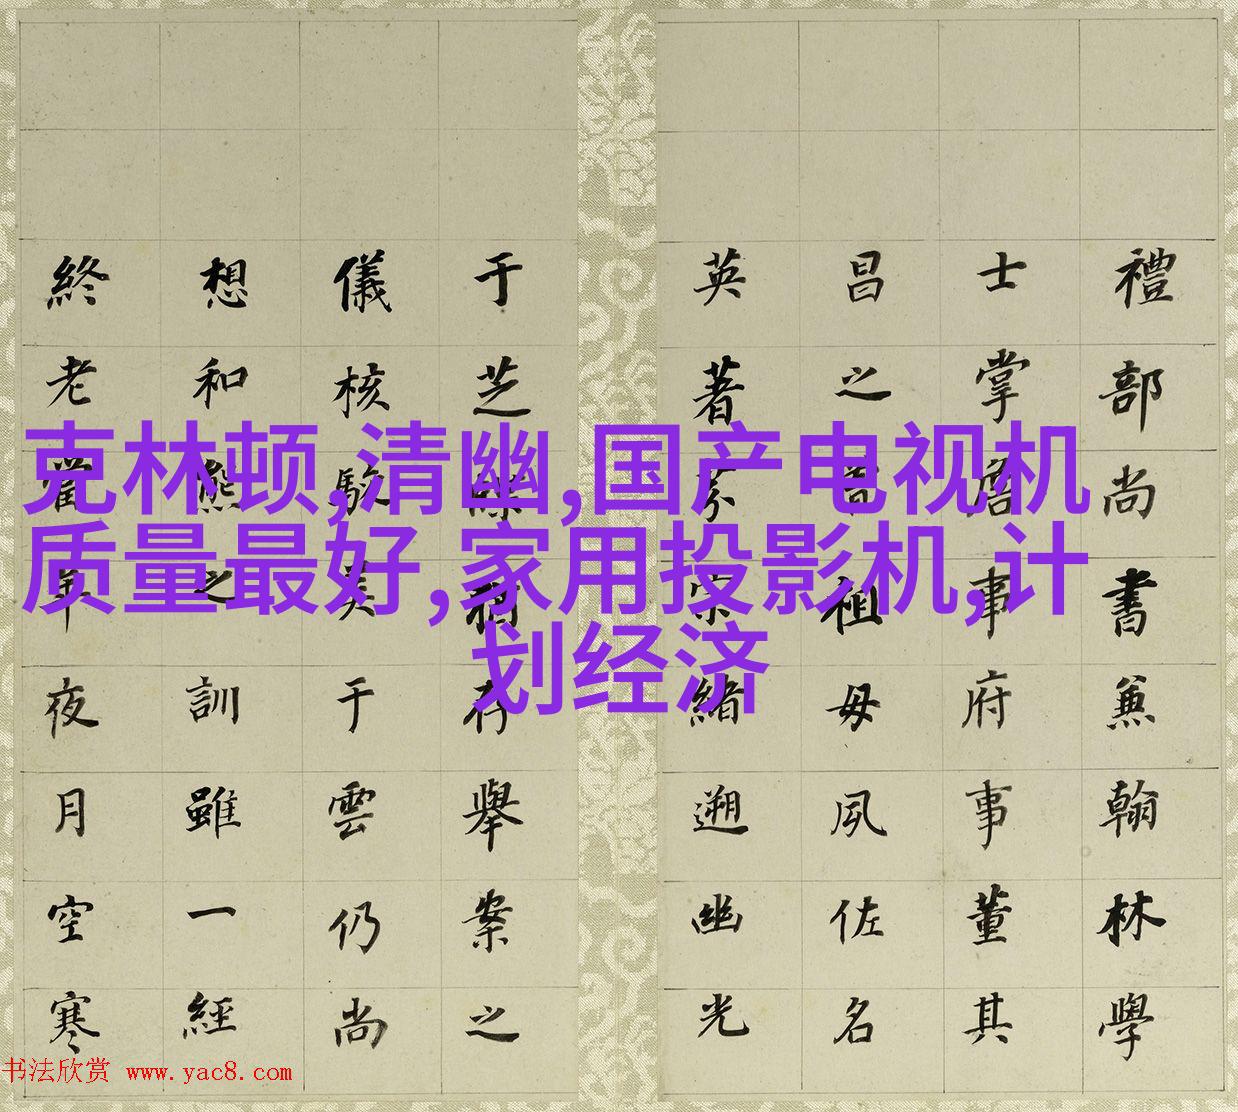 克林顿,清幽,国产电视机
质量最好,家用投影机,计
划经济
禮部尚書兼翰林學
士掌詹事府事董其
昌之祖毋夙佐名
英著宗緒遡幽光
于芝存舉案之
儀核于雲仍尚
想和熊之訓雖一經
終老當年夜月空寒
书法欣赏 www.yac8.com